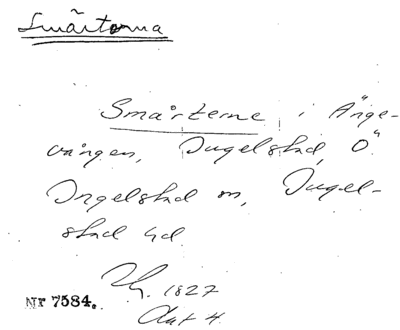 Smårtorna
Smårterne i Änge-
vången, Ingelstad, Ö.
Ingelstad sn, Ingel-
stad hd.
1827
Akt 4.
Nr 7584.